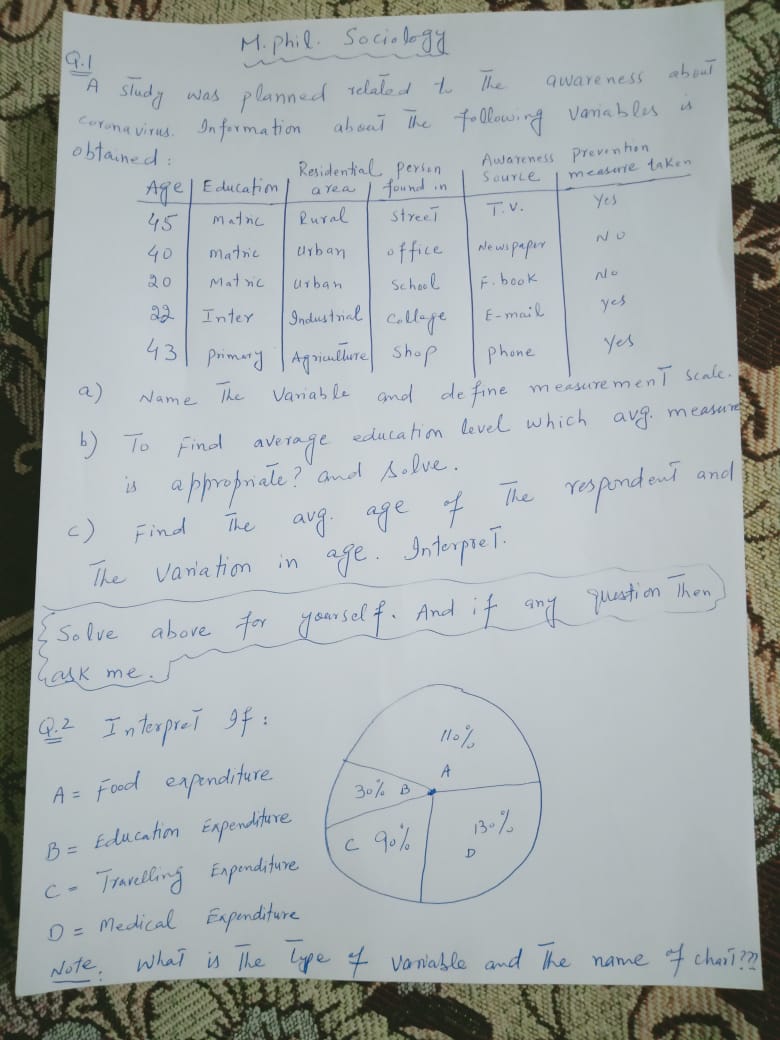 M.phil. Sociology
Q.1
A study was planned related to the awareness about
coronavirus. Information about the following variables is
obtained:
Age | Education | Residential area | Person found in | Awareness Source | Prevention measure taken
45 | Matric | Rural | Street | T.V. | Yes
40 | matric | Urban | office | Newspaper | No
20 | Matric | Urban | School | F.book | No
22 | Inter | Industrial | College | E-mail | yes
43 | Primary | Agriculture | Shop | Phone | Yes
a) Name The Variable and define measurement Scale.
b) To Find average education level which avg. measure
is appropriate? and Solve.
c) Find The avg. age of The respondent and
The variation in age. Interpret.
Solve above for yourself. And if any question Then
ask me.
Q.2 Interpret If:
A = Food expenditure
B = Education Expenditure
C = Travelling Expenditure
D = Medical Expenditure
110%
A
30% B
C 90%
130%
D
Note. What is The Type of variable and The name of chart???